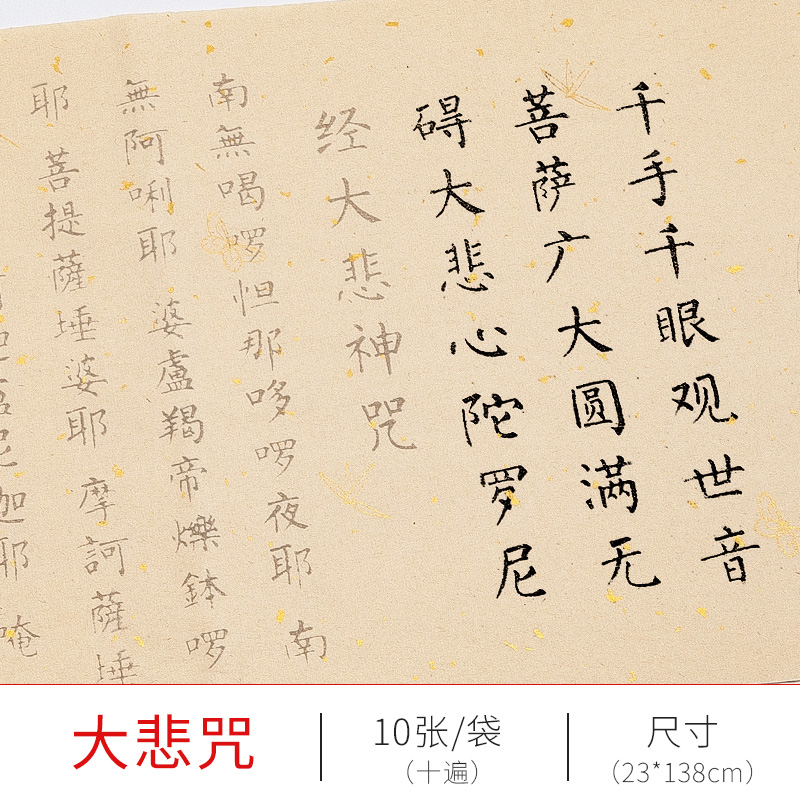 千手千眼观世音
菩萨广大圆满无
碍大悲心陀罗尼
经大悲神咒
南無喝啰怛那哆啰夜耶 南
無阿唎耶 婆盧羯帝爍鉢啰
耶 菩提薩埵婆耶 摩訶薩埵
迦耶 唵
大悲咒
10张/袋
(十遍)
尺寸
(23*138cm)